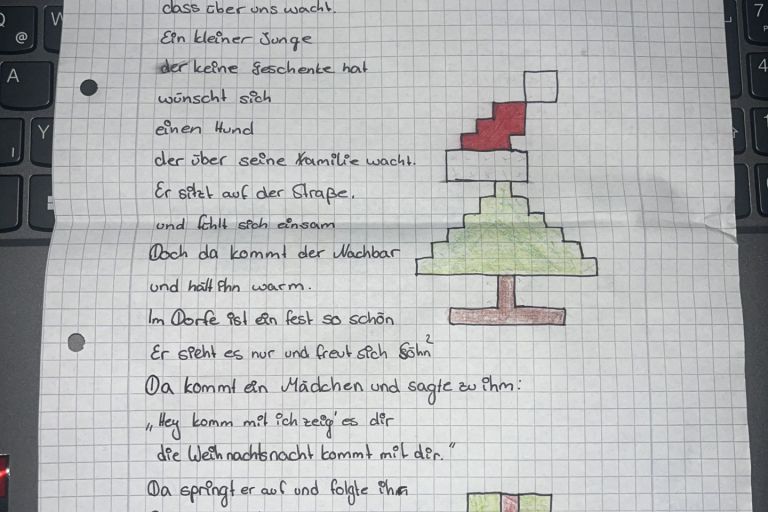 dass über uns wacht.
Ein kleiner Junge
der keine Geschenke hat
wünscht sich
einen Hund
der über seine Familie wacht.
Er sitzt auf der Straße,
und fühlt sich einsam
Doch da kommt der Nachbar
und hält ihn warm.
Im Dorfe ist ein fest so schön
Er sieht es nur und freut sich söhn²
Da kommt ein Mädchen und sagte zu ihm:
„Hey komm mit ich zeig' es dir
die Weihnachtsnacht kommt mit dir."
Da springt er auf und folgte ihr
@
W
A
Y
7
4